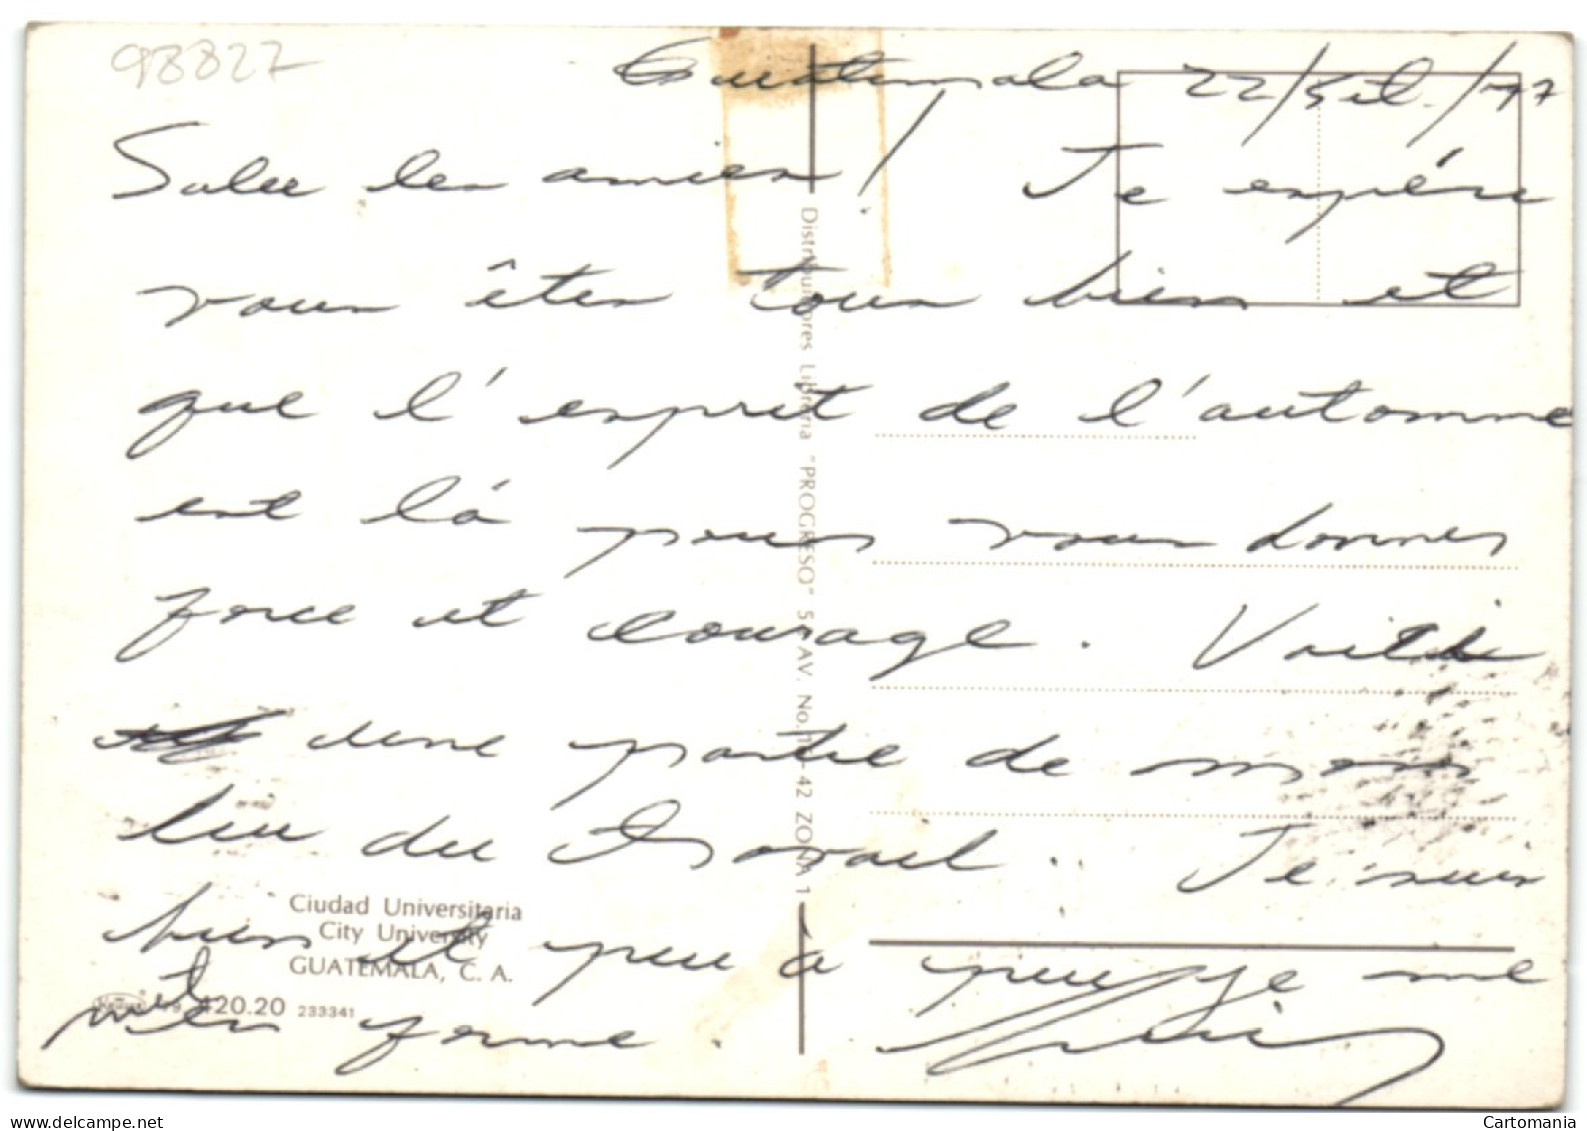 98827
Guatemala 22/Set./77
Salue les amies! Je espére
vous êtes tous bien et
que l'esprit de l'automne
est lá pour vous donner
force et courage. Voilà
une partie de mon
lieu du travail. Je suis
bien et peu à peu je me
met en forme.
Distribuidores Librería "PROGRESO" 5 AV. No. 42 ZONA 1
Ciudad Universitaria
City University
GUATEMALA, C. A.
420.20 233341
www.delcampe.net
Cartomania